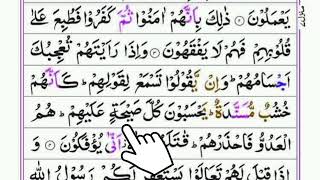 يَعْمَلُوْنَ ۝ ذٰلِكَ بِاَنَّهُمْ اٰمَنُوْا ثُمَّ كَفَرُوْا فَطُبِعَ عَلٰى
قُلُوْبِهِمْ فَهُمْ لَا يَفْقَهُوْنَ ۝ وَاِذَا رَاَيْتَهُمْ تُعْجِبُكَ
اَجْسَامُهُمْ ؕ وَاِنْ يَّقُوْلُوْا تَسْمَعْ لِقَوْلِهِمْ ؕ كَاَنَّهُمْ
خُشُبٌ مُّسَنَّدَةٌ ؕ يَحْسَبُوْنَ كُلَّ صَيْحَةٍ عَلَيْهِمْ ؕ هُمُ
الْعَدُوُّ فَاحْذَرْهُمْ ؕ قٰتَلَهُمُ اَنّٰى يُؤْفَكُوْنَ ۝
وَاِذَا قِيْلَ لَهُمْ تَعَالَوْا يَسْتَغْفِرْ لَكُمْ رَسُوْلُ اللّٰهِ